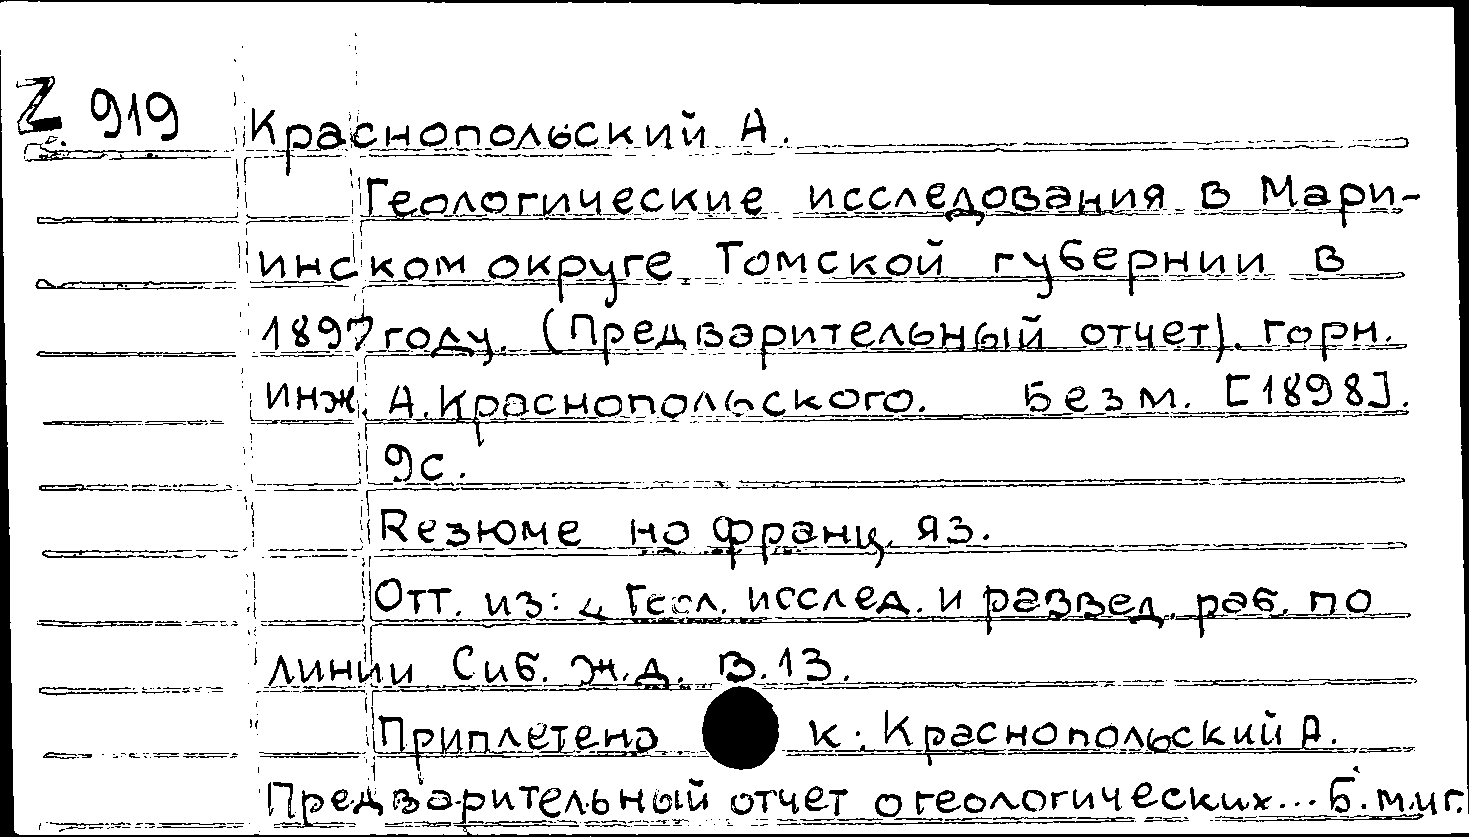 Z. 919 Краснопольский А.
Геологические исследования в Мари-
инском округе Томской губернии в
1897 году. (Предварительный отчет). горн.
инж. А. Краснопольского. Без м. [1898].
9с.
Резюме на франц. яз.
Отт. из: Геол. исслед. и развед. раб. по
линии Сиб. ж.д. В.13.
Приплетено к: Краснопольский А.
Предварительный отчет о геологических... Б.м.и г.